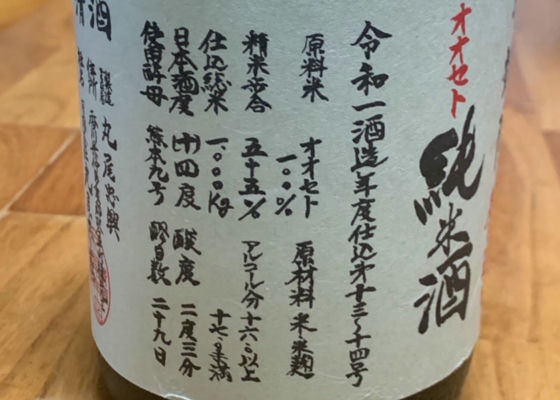 オオセト
純米酒
令和一酒造年度仕込第十三〜十四号
原料米 オオセト 一〇〇%
原材料 米 米麹
精米歩合 五十五%
アルコール分十六.〇以上
十七.〇未満
仕込総米 一.〇〇〇Kg
日本酒度 (+)四度
酸度 二度三分
使用酵母 熊本九号
醪日数 二十九日
丸尾忠興
清酒